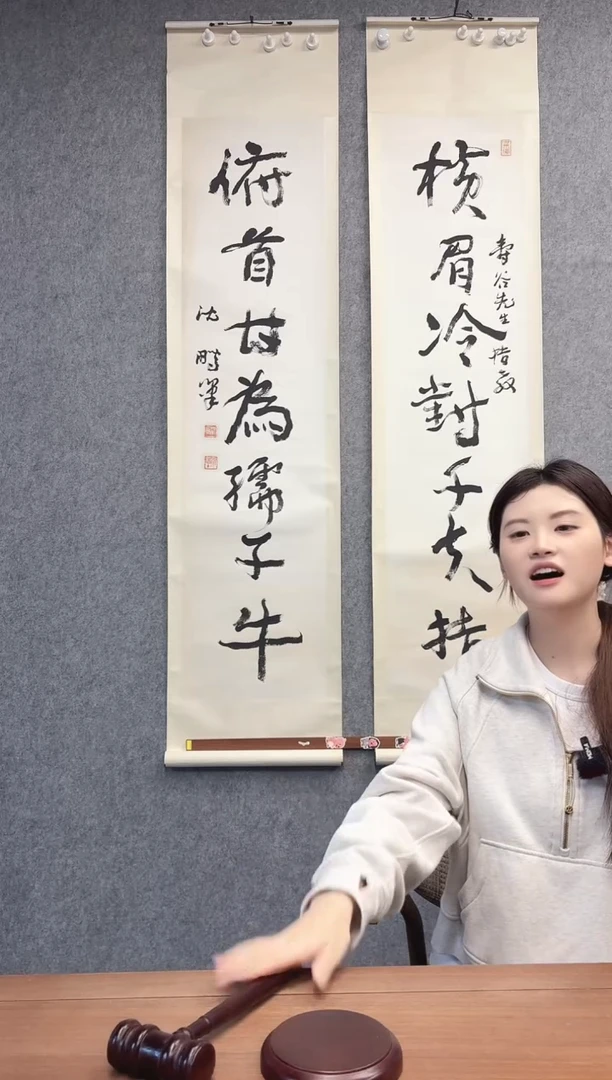 横眉冷對千夫指
寿谷先生指教
俯首甘為孺子牛
沈鵬筆